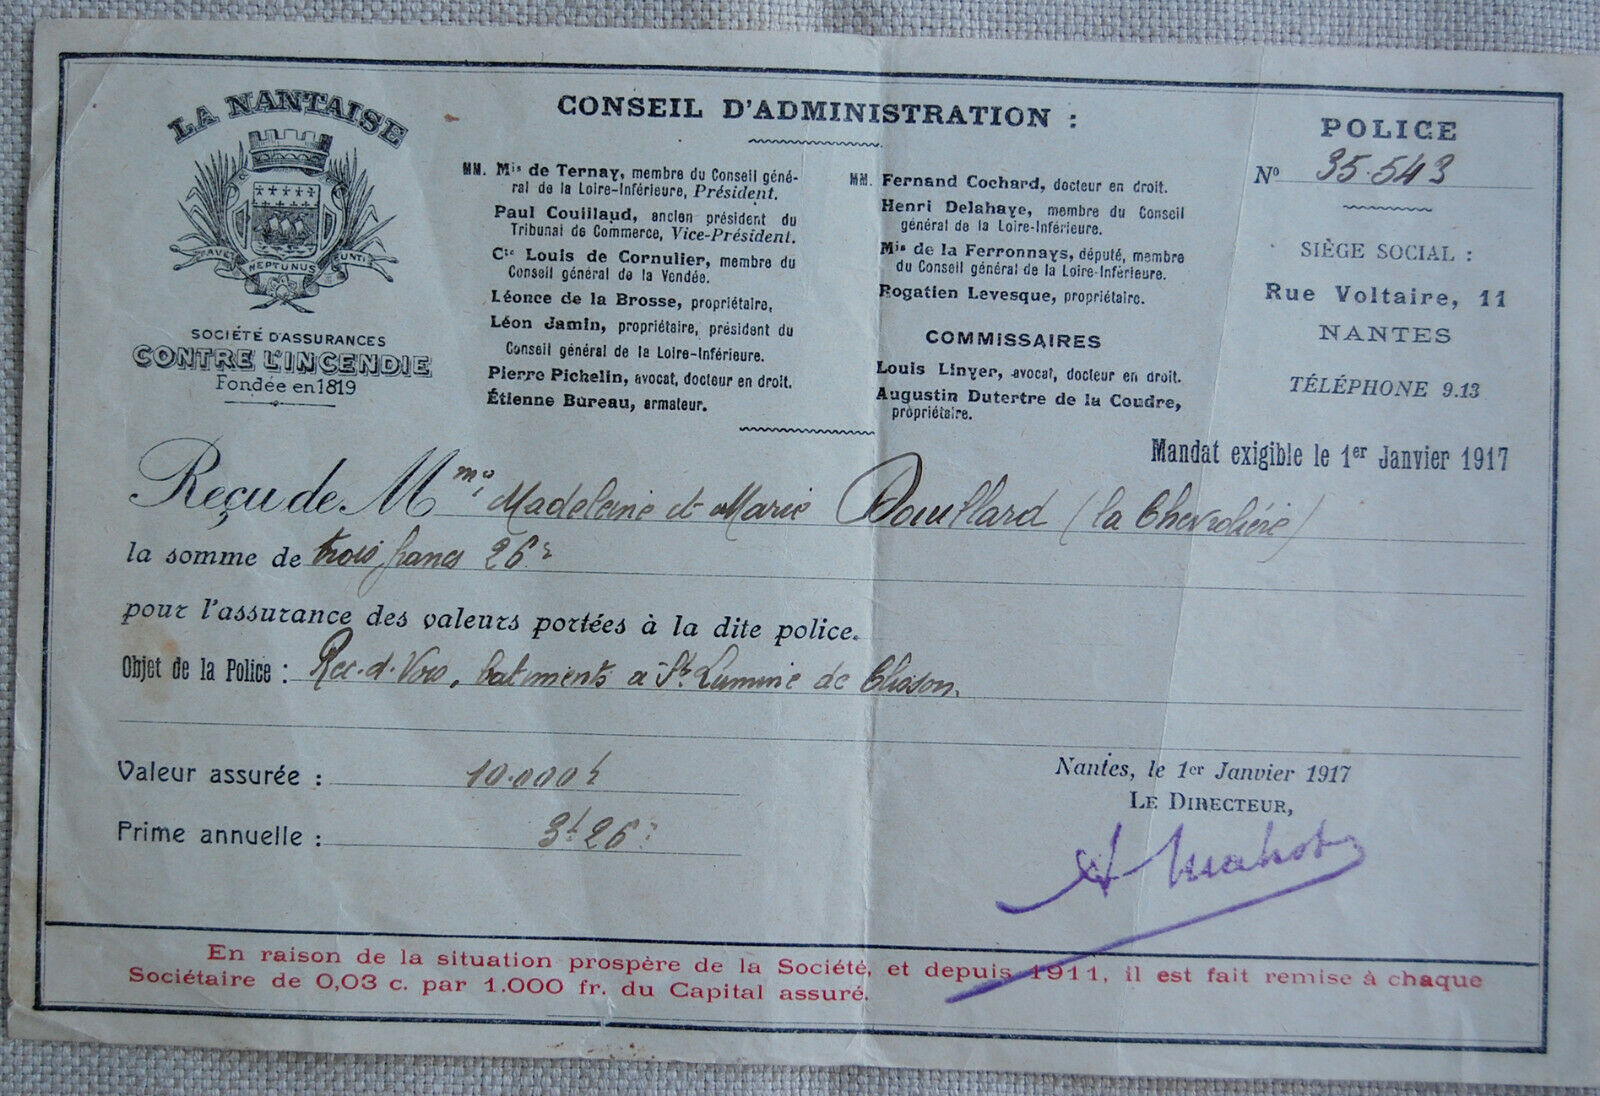 LA NANTAISE
FAVET NEPTUNUS EUNTI
SOCIÉTÉ D'ASSURANCES
CONTRE L'INCENDIE
Fondée en 1819
CONSEIL D'ADMINISTRATION :
MM. Mis de Ternay, membre du Conseil géné-
ral de la Loire-Inférieure, Président.
Paul Couillaud, ancien président du
Tribunal de Commerce, Vice-Président.
Cte Louis de Cornulier, membre du
Conseil général de la Vendée.
Léonce de la Brosse, propriétaire,
Léon Jamin, propriétaire, président du
Conseil général de la Loire-Inférieure.
Pierre Pichelin, avocat, docteur en droit.
Étienne Bureau, armateur.
MM. Fernand Cochard, docteur en droit.
Henri Delahaye, membre du Conseil
général de la Loire-Inférieure.
Mis de la Ferronnays, député, membre
du Conseil général de la Loire-Inférieure.
Rogatien Levesque, propriétaire.
COMMISSAIRES
Louis Linyer, avocat, docteur en droit.
Augustin Dutertre de la Coudre,
propriétaire.
POLICE
No 35.543
SIÈGE SOCIAL :
Rue Voltaire, 11
NANTES
TÉLÉPHONE 9.13
Mandat exigible le 1er Janvier 1917
Reçu de Mme Madeleine et Marie Douillard (la Chevrolière)
la somme de trois francs 26c
pour l'assurance des valeurs portées à la dite police.
Objet de la Police : Rec. d. Vois, batiments a St Lumine de Clisson.
Valeur assurée : 10.000f
Prime annuelle : 3f 26c
Nantes, le 1er Janvier 1917
LE DIRECTEUR,
A Mahot
En raison de la situation prospère de la Société, et depuis 1911, il est fait remise à chaque
Sociétaire de 0,03 c. par 1.000 fr. du Capital assuré.